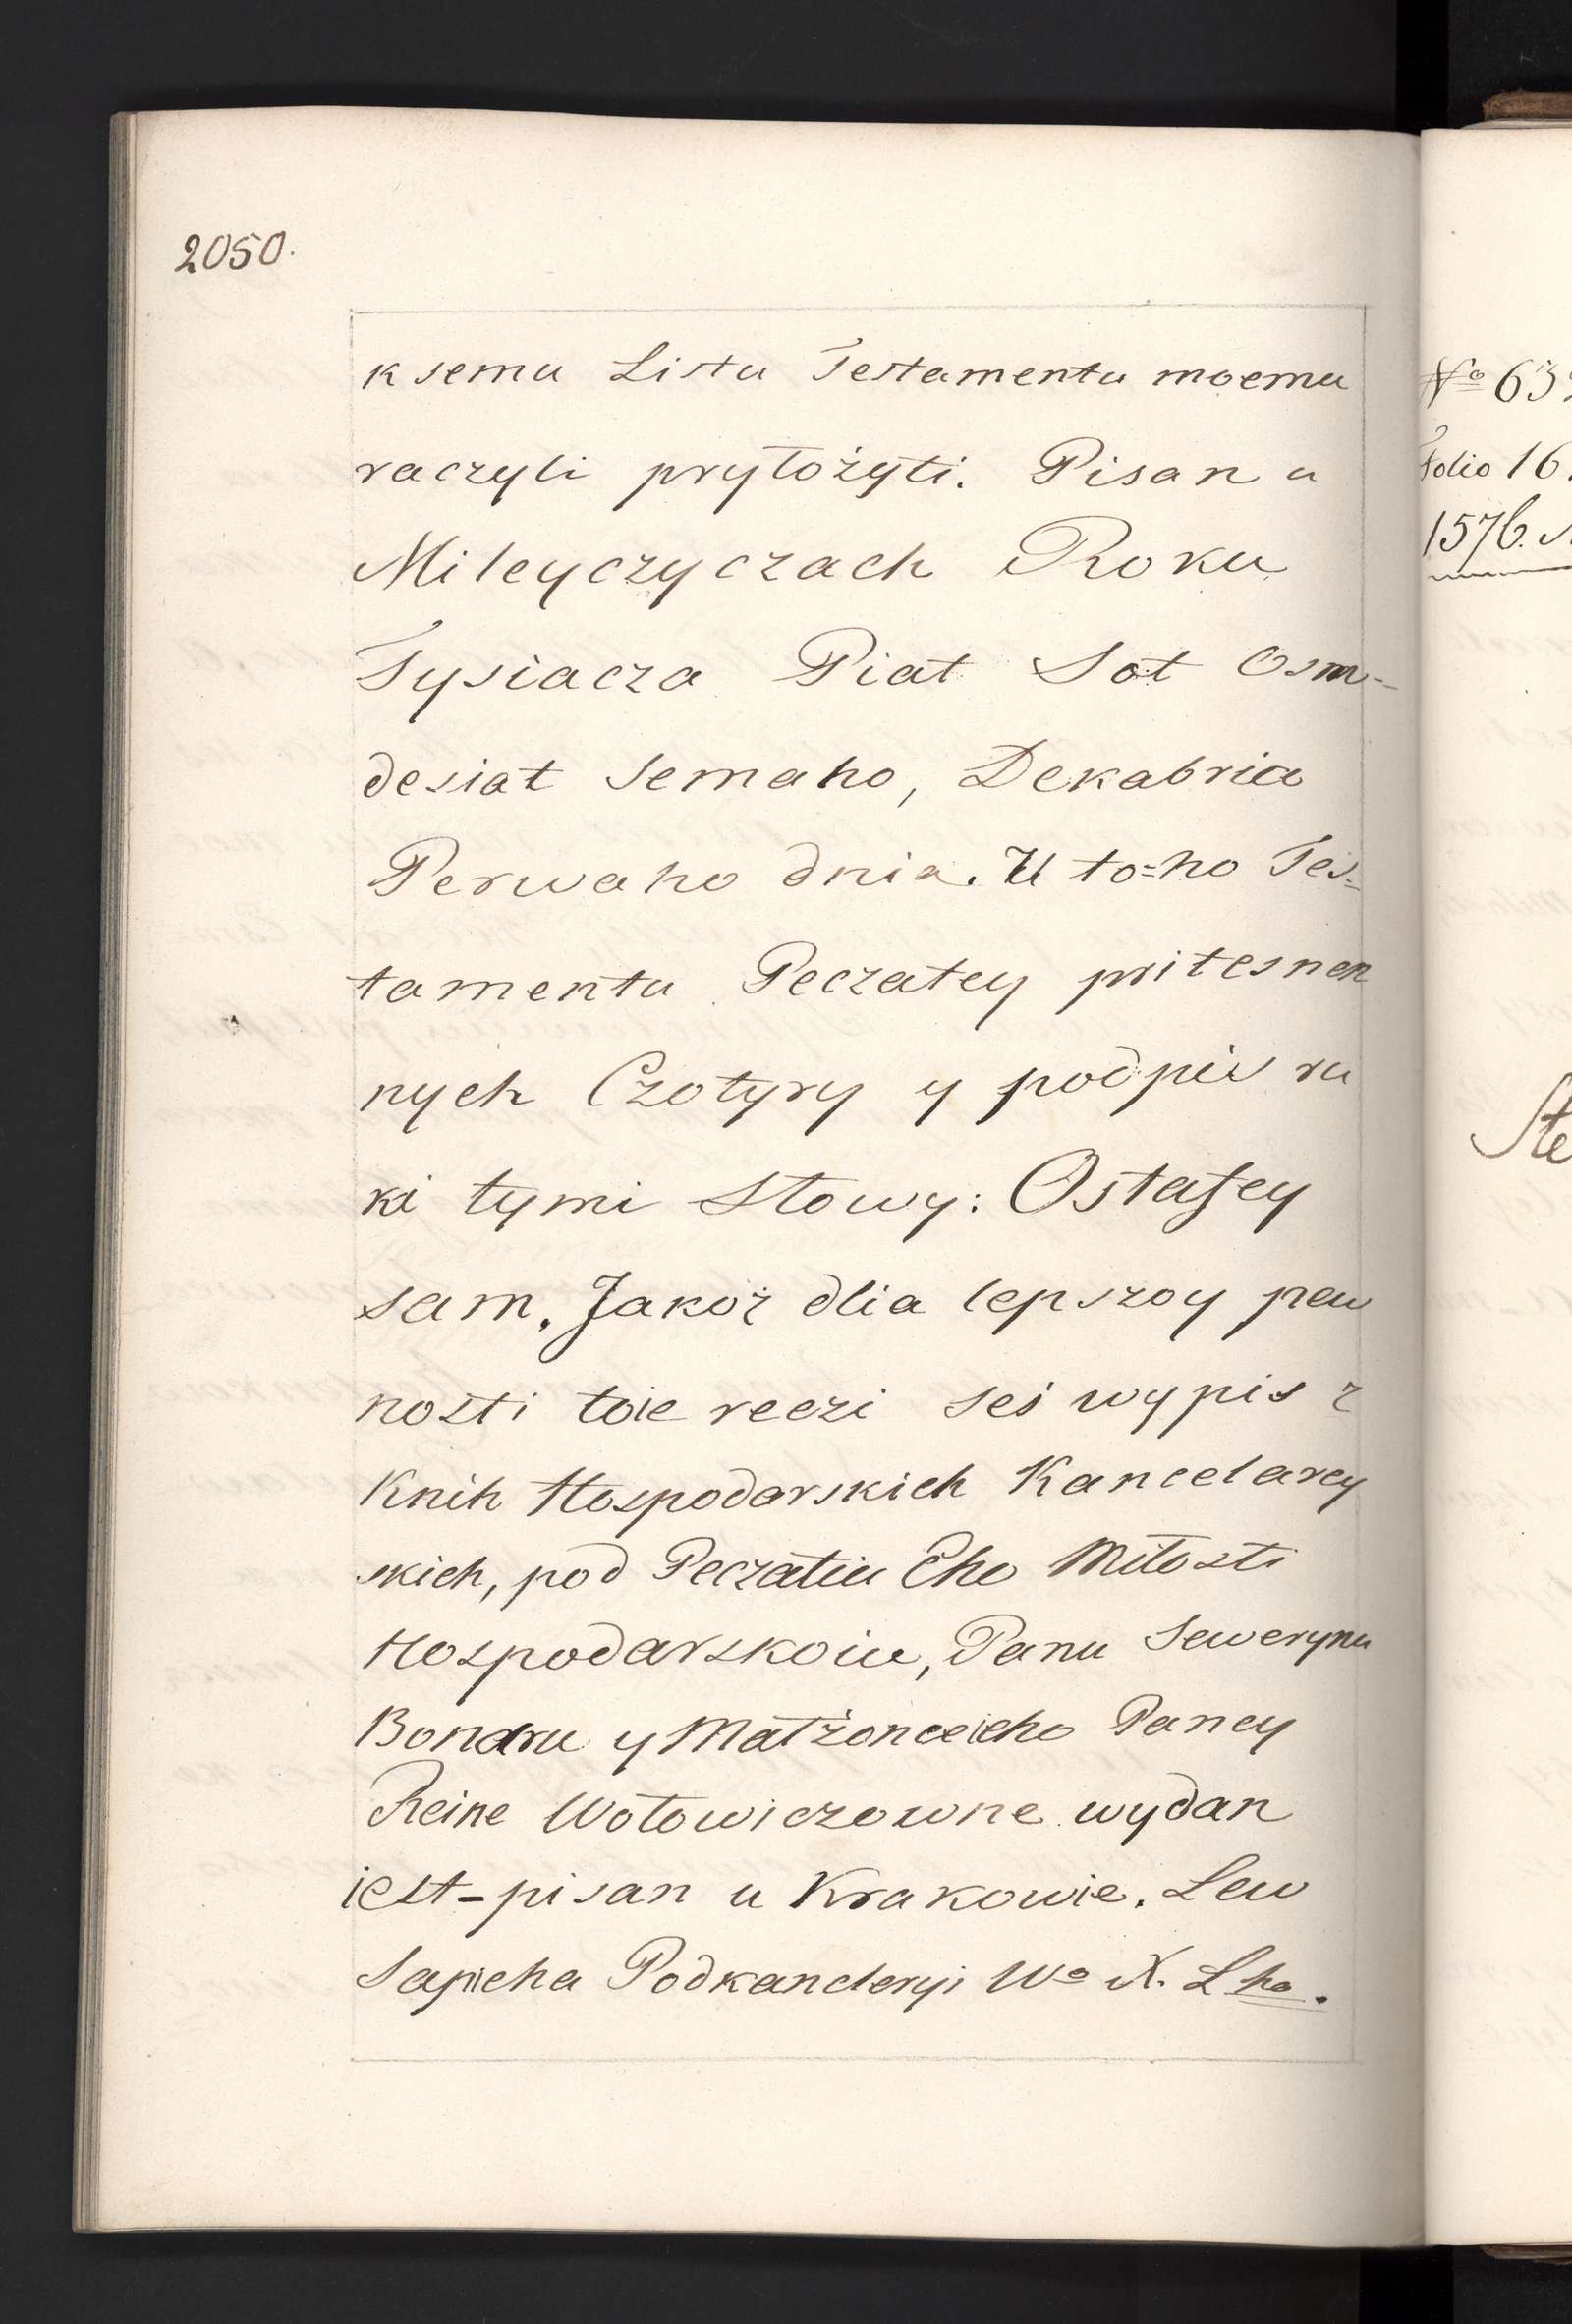 2050.
ksemu Listu Testamentu moemu
raczyli pryłożyti. Pisan u
Mileyczyczach Roku
Tysiacza Piat Sot Osm-
desiat Semaho, Dekabria
Perwaho dnia. U to=ho Tes=
tamentu Peczatey pritesnen
nych Czotyry y podpis ru
ki tymi Słowy: Ostafey
sam. Jakoż dlia lepszoy pew
nosti toie reczi seś wypis z
Knih Hospodarskich Kancelarey
skich, pod Peczatiu Eho Miłosti
Hospodarskoiu, Panu Sewerynu
Bonaru y Małżonce ieho Paney
Reine Wołowiczowne wydan
iest-pisan u Krakowie. Lew
Sapieha Podkancleryi Wo X. Lho.
No 63
Folio 16
1576.
Ste